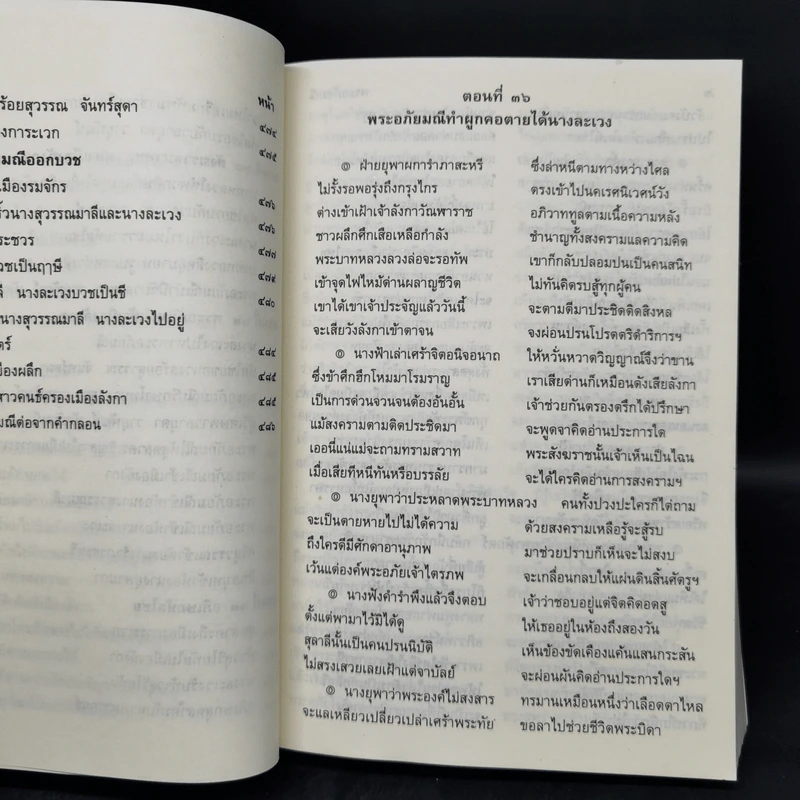 ร้อยสุวรรณ จันทร์สุดา
หน้า
งการะเวก ๔๗๔
มณีออกบวช ๔๗๕
เมืองรมจักร
นางสุวรรณมาลีและนางละเวง ๔๗๖
ระชวร ๔๗๖
วชเป็นฤๅษี ๔๗๗
ลี นางละเวงบวชเป็นชี ๔๗๙
นางสุวรรณมาลี นางละเวงไปอยู่ ๔๘๐
ตร์ ๔๘๔
มืองผลึก ๔๘๕
สาวคนธ์ครองเมืองลังกา ๔๘๕
มณีต่อจากคำกลอน ๔๘๖
ตอนที่ ๓๖
พระอภัยมณีทำผูกคอตายได้นางละเวง
๏ ฝ่ายยุพาผการำภาสะหรี ซึ่งล่าหนีตามทางหว่างไศล
ไม่รั้งรอพอรุ่งถึงกรุงไกร ตรงเข้าไปนคเรศนิเวศน์วัง
ต่างเข้าเฝ้าเจ้าลังกาวัณพาราช อภิวาททูลตามเนื้อความหลัง
ชาวผลึกศึกเสือเหลือกำลัง ชำนาญทั้งสงครามแลความคิด
พระบาทหลวงลวงล่อจะรอทัพ เขาก็กลับปลอมปนเป็นคนสนิท
เข้าจุดไฟไหม้ด่านผลาญชีวิต ไม่ทันคิดรบสู้ทุกผู้คน
เขาได้เขาเจ้าประจัญแล้ววันนี้ จะตามตีมาประชิดติดสิงหล
จะเสียวังลังกาเข้าตาจน จงผ่อนปรนโปรดตรัสดำริการฯ
๏ นางฟ้าเล่าเศร้าจิตอนิจอนาถ ให้หวั่นหวาดวิญญาณ์จึงว่าขาน
ซึ่งข้าศึกฮึกโหมมาโรมราญ เราเสียด่านก็เหมือนดังเสียลังกา
เป็นการด่วนจวนจนต้องอันอั้น เจ้าช่วยกันตรองตรึกได้ปรึกษา
แม้สงครามตามติดประชิดมา จะพูดจาคิดอ่านประการใด
เออนี่แน่แม่จะถามทรามสวาท พระสังฆราชนั้นเจ้าเห็นเป็นไฉน
เมื่อเสียทีหนีทันหรือบรรลัย จะได้ใครคิดอ่านการสงครามฯ
๏ นางยุพาว่าประหลาดพระบาทหลวง คนทั้งปวงปะใครก็ไต่ถาม
จะเป็นตายหายไปไม่ได้ความ ด้วยสงครามเหลือรู้จะสู้รบ
ถึงใครดีมีศักดาอานุภาพ มาช่วยปราบก็เห็นจะไม่สงบ
เว้นแต่องค์พระอภัยเจ้าไตรภพ จะเกลื่อนกลบให้แผ่นดินสิ้นศัตรูฯ
๏ นางฟังคำรำพึงแล้วจึงตอบ เจ้าว่าชอบอยู่แต่จิตคิดอดสู
ตั้งแต่พามาไว้มิได้ดู ให้เธออยู่ในห้องถึงสองวัน
สุลาลีนั้นเป็นคนปรนนิบัติ เห็นข้องขัดเคืองแค้นแสนกระสัน
ไม่สรงเสวยเลยเฝ้าแต่จาบัลย์ จะผ่อนผันคิดอ่านประการใดฯ
๏ นางยุพาว่าพระองค์ไม่สงสาร ทรมานเหมือนหนึ่งว่าเลือดตาไหล
จะแลเหลียวเปลี่ยวเปล่าเศร้าพระทัย ขอลาไปช่วยชีวิตพระบิดา